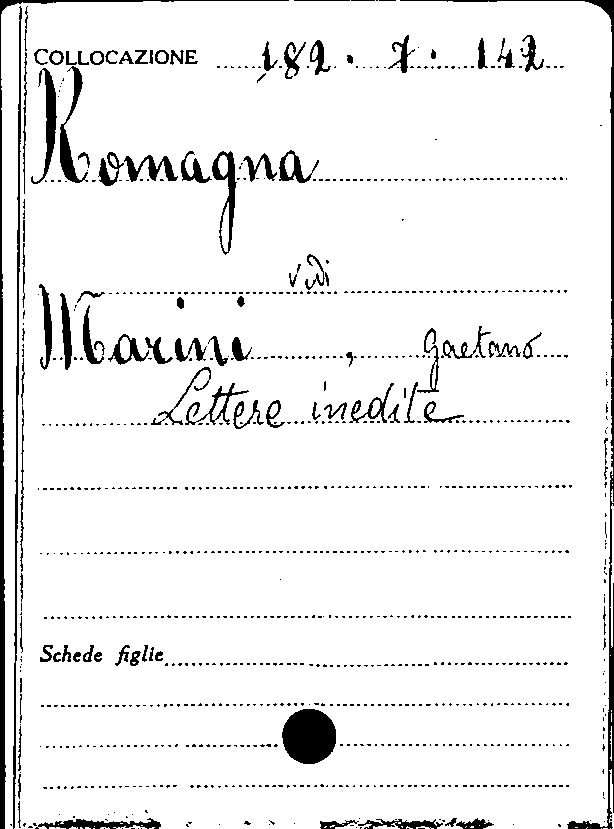 COLLOCAZIONE 182. 7. 142
Romagna
Vedi
Marini, Gaetano
Lettere inedite
Schede figlie